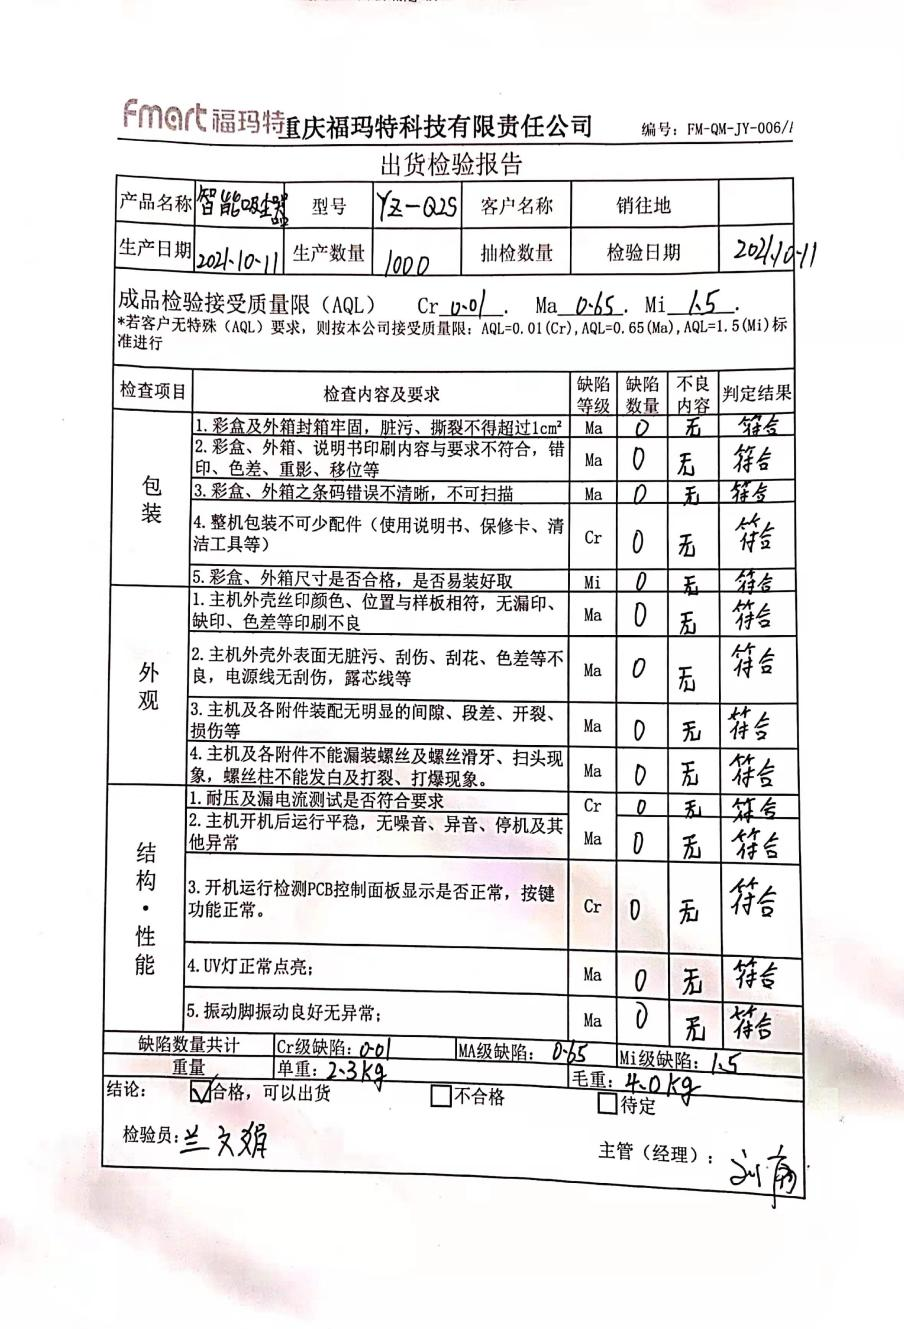 Fmart福玛特重庆福玛特科技有限责任公司 编号: FM-QM-JY-006/
出货检验报告
产品名称 智能吸尘器 型号 YZ-Q2S 客户名称 销往地
生产日期 2021.10.11 生产数量 1000 抽检数量 检验日期 2021.10.11
成品检验接受质量限(AQL) Cr 0.01. Ma 0.65. Mi 1.5.
*若客户无特殊(AQL)要求,则按本公司接受质量限: AQL=0.01(Cr),AQL=0.65(Ma),AQL=1.5(Mi)标
准进行
检查项目 检查内容及要求 缺陷等级 缺陷数量 不良内容 判定结果
包装
1.彩盒及外箱封箱牢固,脏污、撕裂不得超过1cm² Ma 0 无 符合
2.彩盒、外箱、说明书印刷内容与要求不符合,错
印、色差、重影、移位等 Ma 0 无 符合
3.彩盒、外箱之条码错误不清晰,不可扫描 Ma 0 无 符合
4.整机包装不可少配件(使用说明书、保修卡、清
洁工具等) Cr 0 无 符合
5.彩盒、外箱尺寸是否合格,是否易装好取 Mi 0 无 符合
外观
1.主机外壳丝印颜色、位置与样板相符,无漏印、
缺印、色差等印刷不良 Ma 0 无 符合
2.主机外壳外表面无脏污、刮伤、刮花、色差等不
良,电源线无刮伤,露芯线等 Ma 0 无 符合
3.主机及各附件装配无明显的间隙、段差、开裂、
损伤等 Ma 0 无 符合
4.主机及各附件不能漏装螺丝及螺丝滑牙、扫头现
象,螺丝柱不能发白及打裂、打爆现象。 Ma 0 无 符合
结构·性能
1.耐压及漏电流测试是否符合要求 Cr 0 无 符合
2.主机开机后运行平稳,无噪音、异音、停机及其
他异常 Ma 0 无 符合
3.开机运行检测PCB控制面板显示是否正常,按键
功能正常。 Cr 0 无 符合
4.UV灯正常点亮; Ma 0 无 符合
5.振动脚振动良好无异常; Ma 0 无 符合
缺陷数量共计 Cr级缺陷: 0.01 MA级缺陷: 0.65 Mi级缺陷: 1.5
重量 单重: 2.3kg 毛重: 4.0kg
结论: ☑合格,可以出货 □不合格 □待定
检验员: 兰文娟 主管(经理):